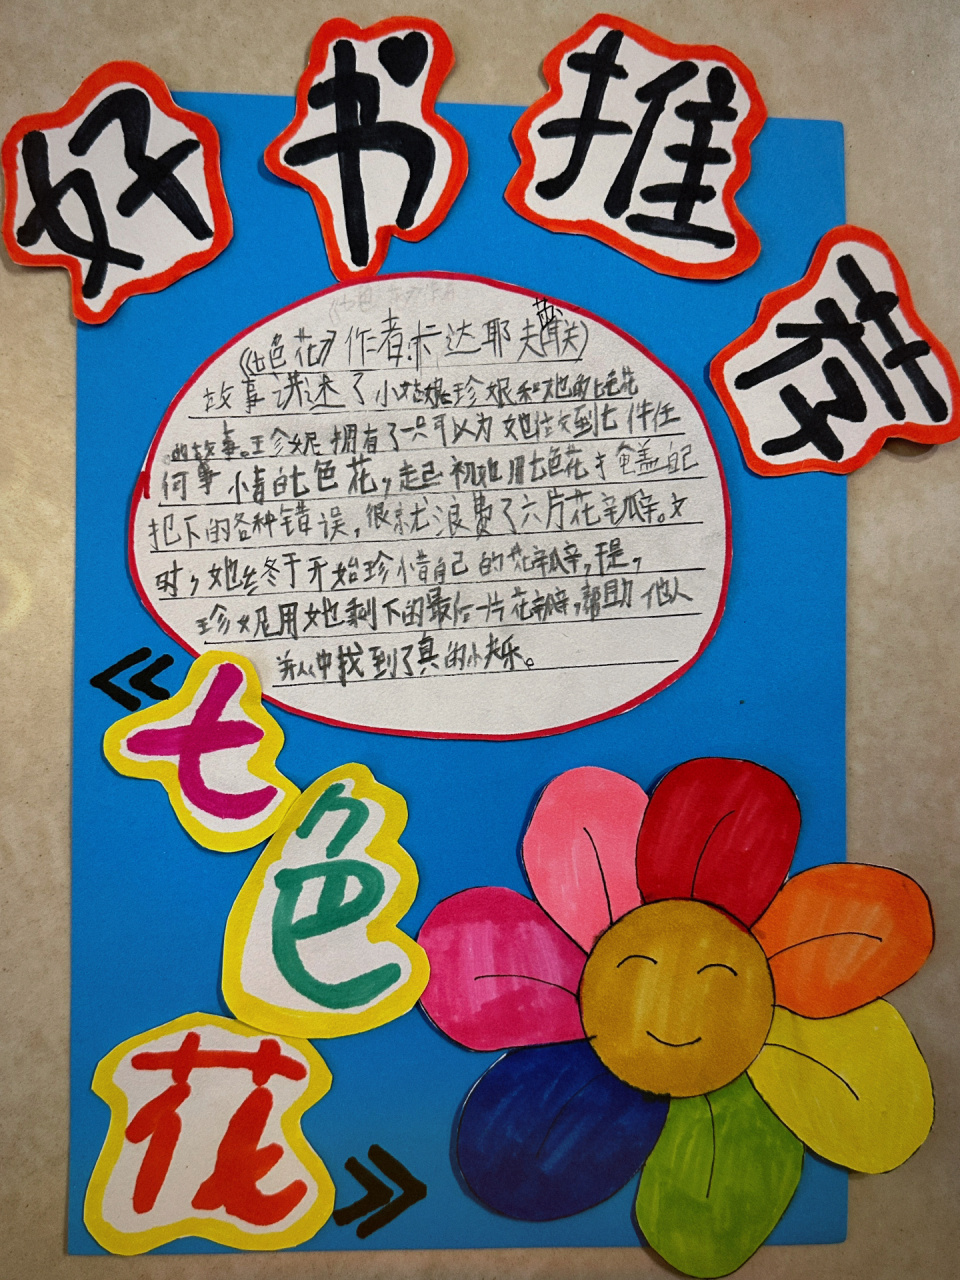 好书推荐
《七色花》作者卡达耶夫(苏联)
故事讲述了小姑娘珍妮和她的七色花
的故事。珍妮拥有了一只可以为她做到七件任
何事情的七色花,起初她用七色花掩盖自己
犯下的各种错误,很就浪费了六片花瓣。
时,她终于开始珍惜自己的花瓣,于是,
珍妮用她剩下的最后一片花瓣,帮助他人
并从中找到了真的快乐。
《七色花》